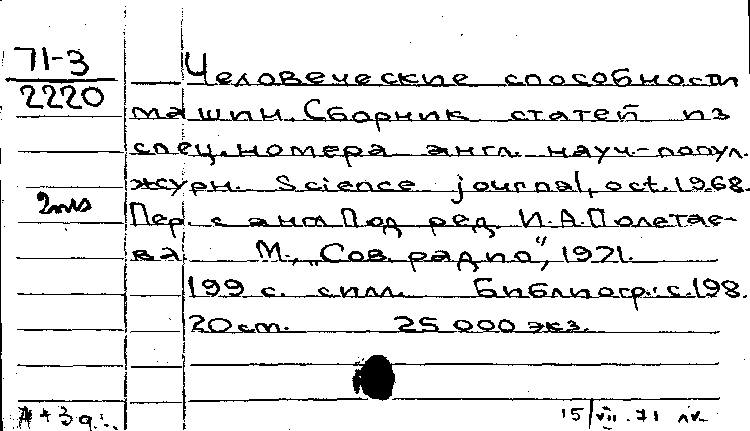 71-3
2220
Человеческие способности
машин. Сборник статей из
спец. номера англ. науч.-попул.
журн. Science journal, oct. 1968.
Пер. с англ Под ред. И.А.Полетае-
ва М., „Сов. радио“, 1971.
199 с. с илл. Библиогр.: с. 198.
20 см. 25 000 экз.
15/VII.71